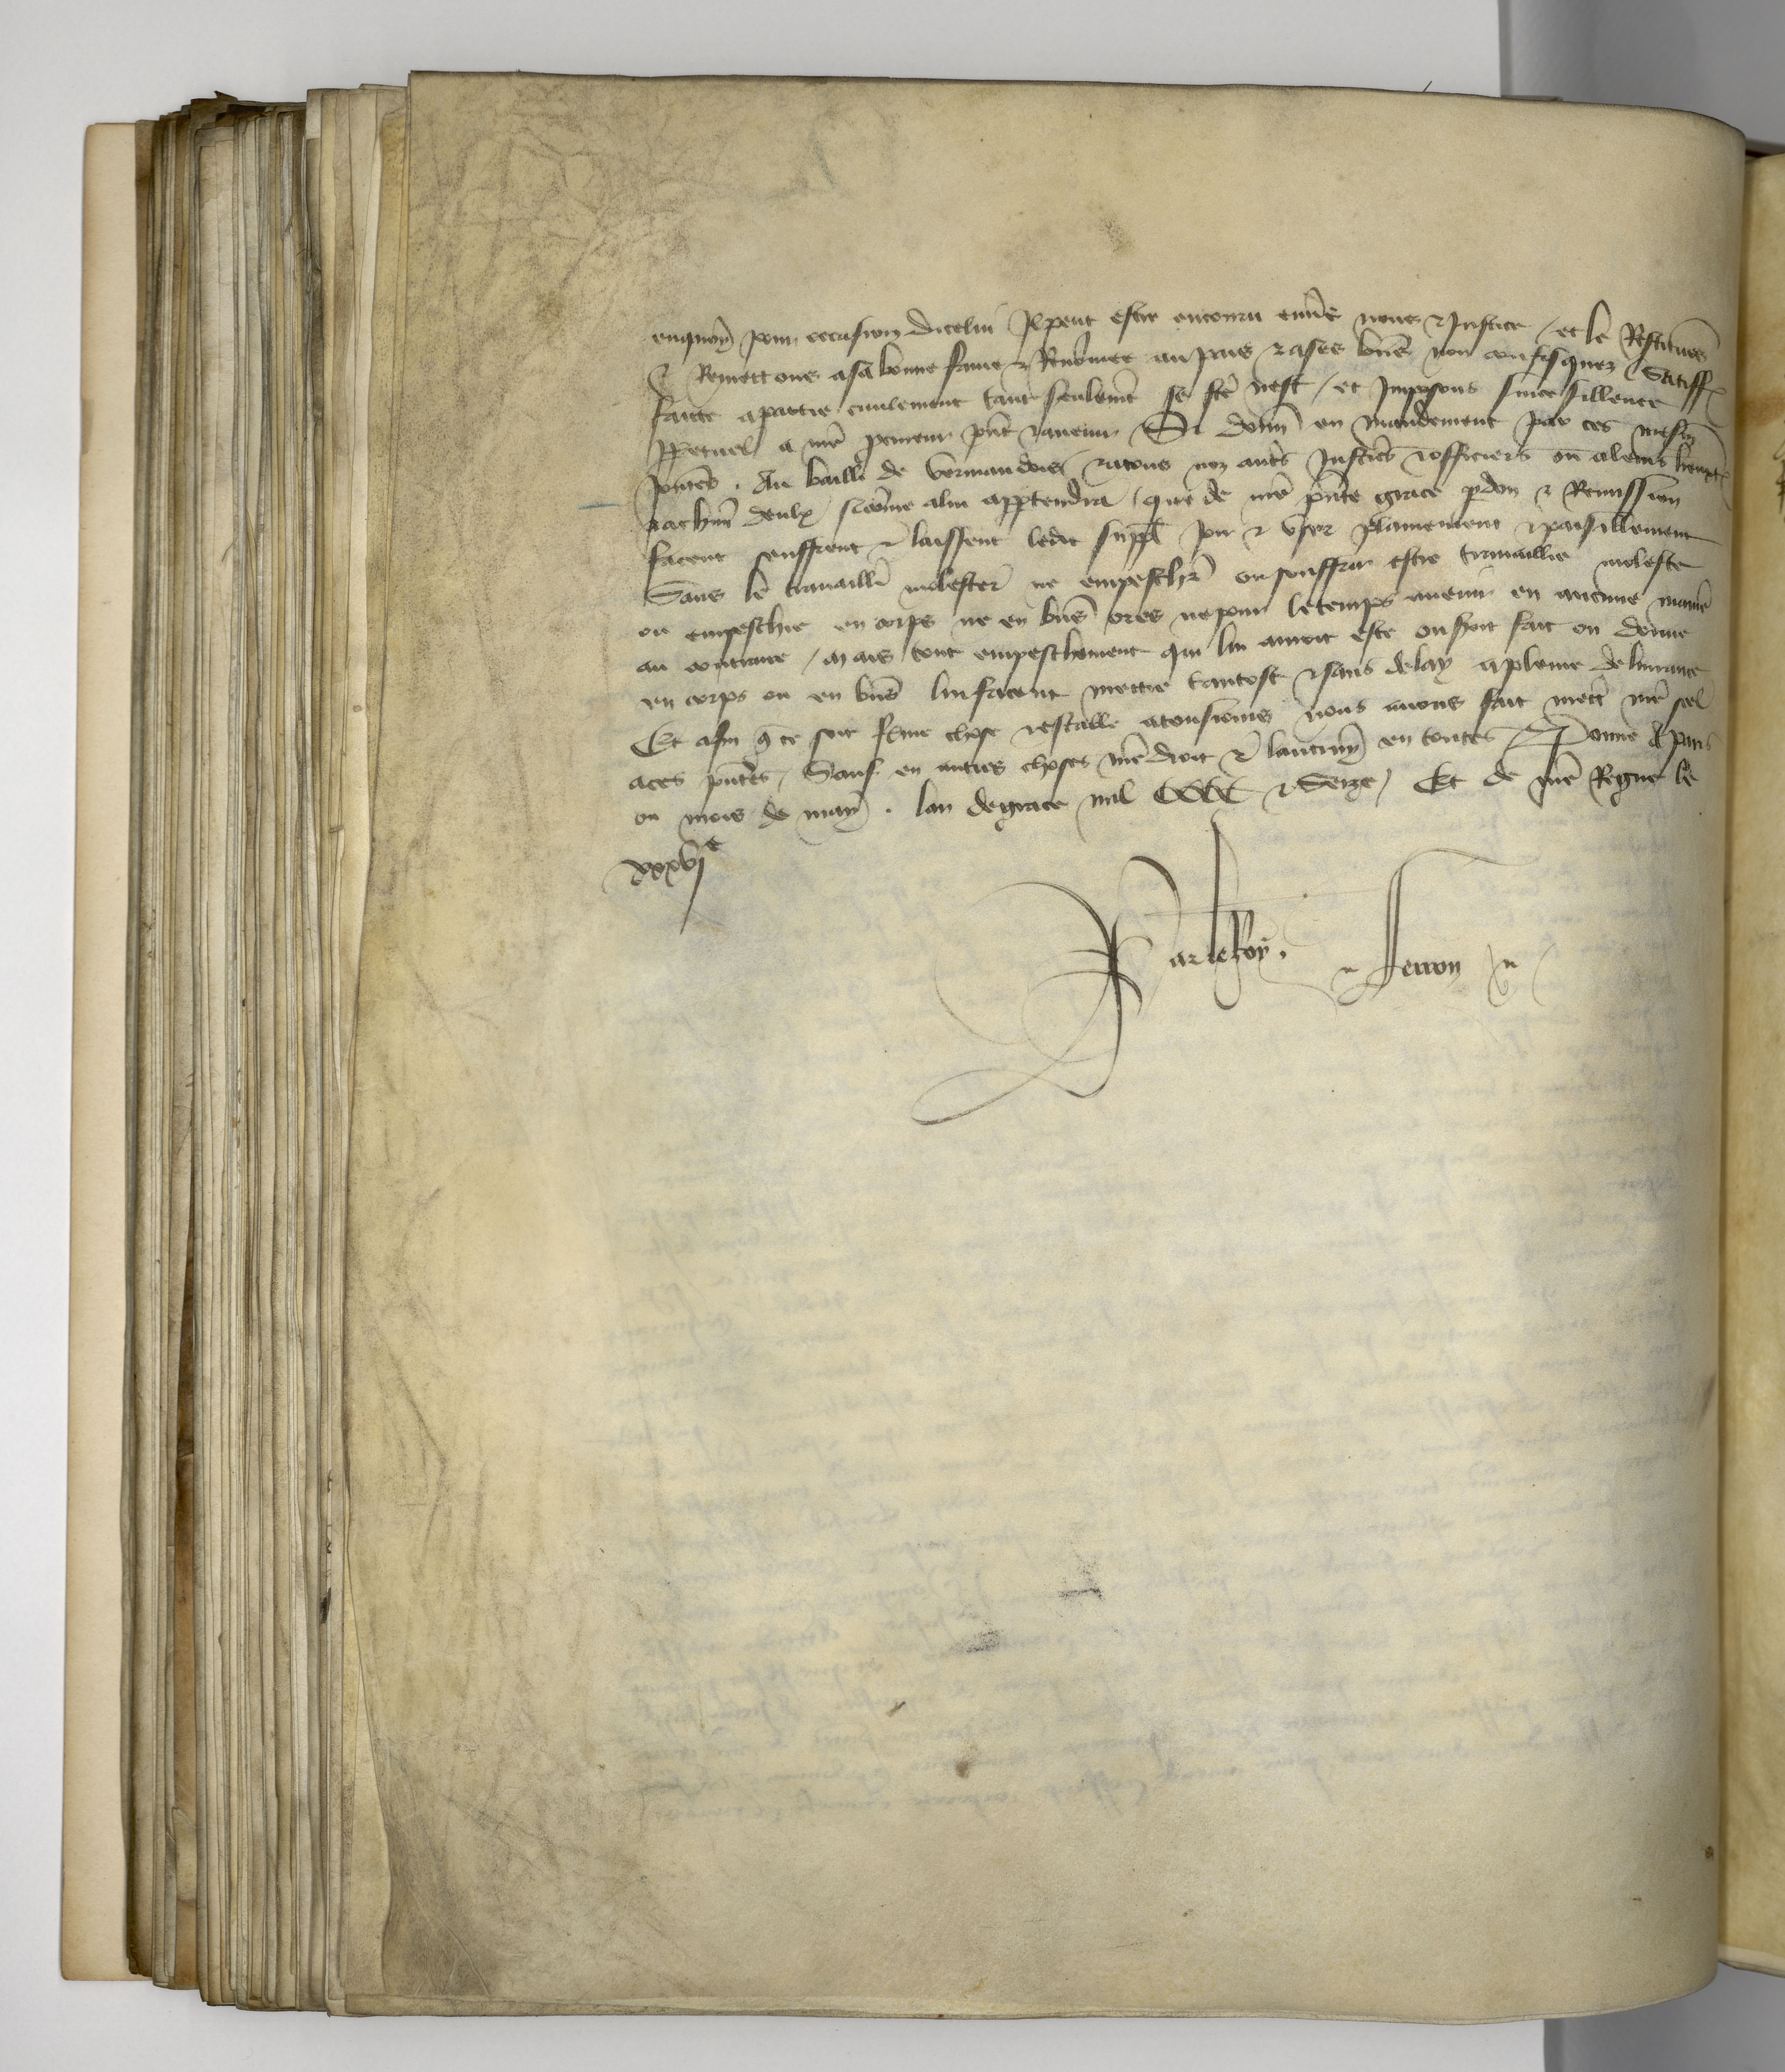 enquoy pour occasion dicelui Il peut estre encouru enūs nous & Justice / et le Restituōs
& Remettons a sa bonne fame & Renōmee au pais & a ses biēs non confisquez / Satisff̄
faitte a partie ciuilement tant seulemt̄ se fcē nest / et Imposons sur ce sillence
ꝑpetuel a nrē procureur pn̄t & auenir Si donn̄ en mandement par ces mesm̄
pn̄tes . Au bailli de vermandois & a tous noz autr̄s Justiciēs & officiers ou a leurs lieuxten̄
& a chm̄ deulx / si cōme a lui appartendra / que de nrē pn̄te grace ꝑdon & Remission
facent seuffrent & laissent ledit suppl̄ Joir & vser plainement & paisiblement
Sans le trauaillr̄ molester ne empeschr̄ ou souffrir estre trauaillie moleste
ou empeschie en corps ne en biēs ores ne pour le temps auenir en aucune maniē
au contraire / mais tout empeschement qui lui auroit este ou soit fait ou donne
en corps ou en biēs lui facent mettre tantost & sans delay a pleine deliurance
Et afin q̄ ce soit ferme chose & estable a tousiours nous auons fait mettr̄ nrē seel
a ces pn̄tes / Sauf en autres choses nrē droit & lautruy en toutes / Donne a paris
ou mois de may . lan de grace mil CCCC & Seize / Et de nrē Regne le
xxxvjᵉ
Par le Roy . Ferron